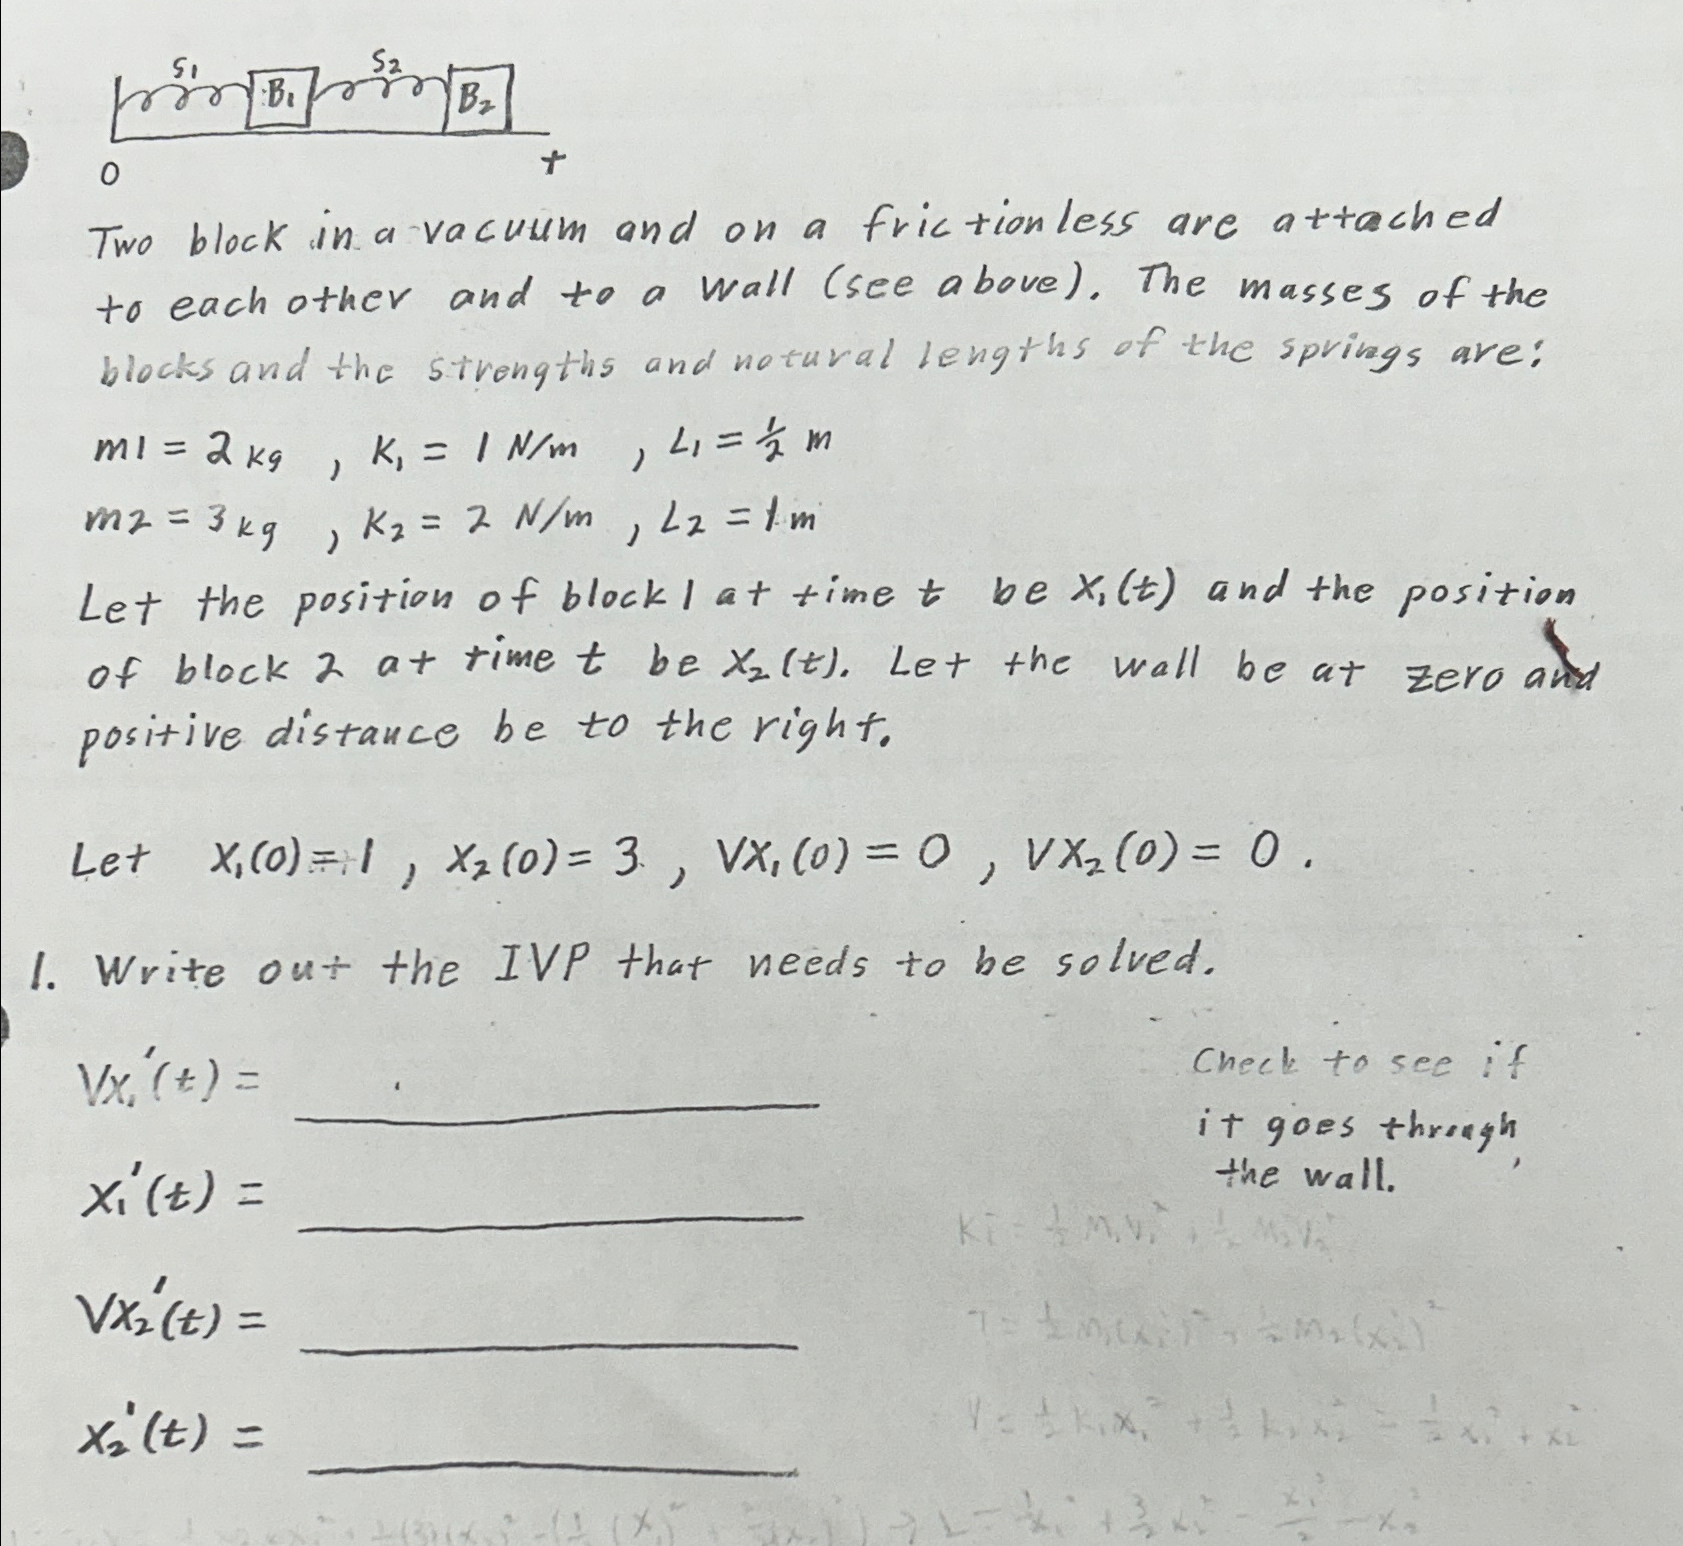 S1 B1 S2 B2
0 +
Two block in a vacuum and on a frictionless are attached
to each other and to a wall (see above). The masses of the
blocks and the strengths and natural lengths of the springs are:
m1 = 2 kg , K₁ = 1 N/m , L₁ = ½ m
m2 = 3 kg , K₂ = 2 N/m , L₂ = 1 m
Let the position of block 1 at time t be X₁(t) and the position
of block 2 at time t be X₂(t). Let the wall be at zero and
positive distance be to the right.
Let X₁(0) = 1 , X₂(0) = 3 , VX₁(0) = 0 , VX₂(0) = 0 .
1. Write out the IVP that needs to be solved.
Vx₁'(t) =
X₁'(t) =
VX₂'(t) =
X₂'(t) =
Check to see if
it goes through
the wall.